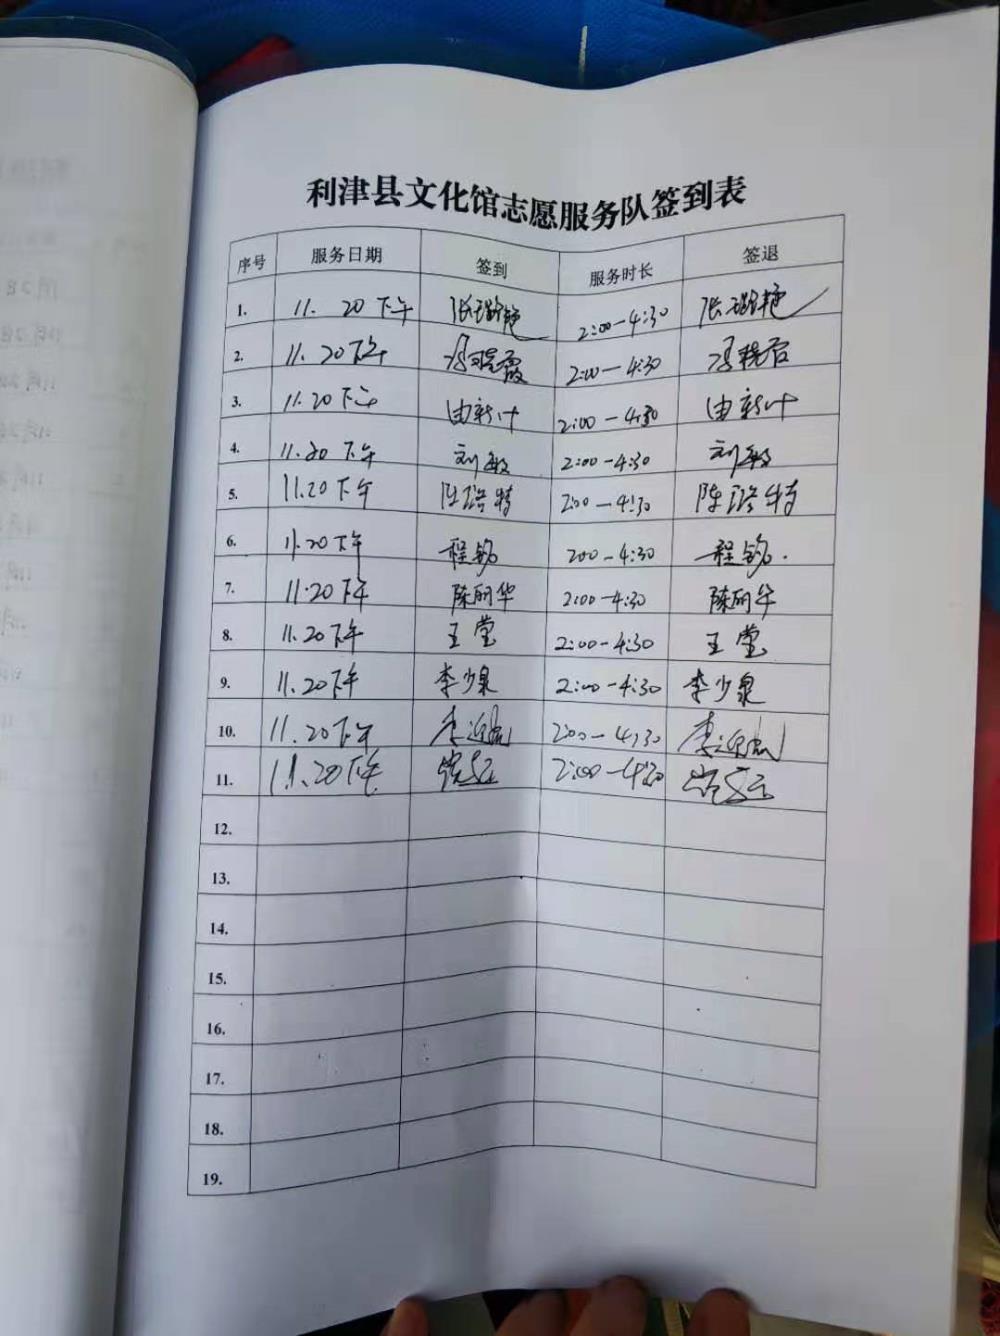 利津县文化馆志愿服务队签到表
序号 服务日期 签到 服务时长 签退
1. 11. 20下午 张 艳 2:00-4:30 张 艳
2. 11. 20下午 2:00-4:30
3. 11.20下午 由新叶 2:00-4:30 由新叶
4. 11.20下午 刘敏 2:00-4:30 刘敏
5. 11.20下午 陈 特 2:00-4:30 陈 特
6. 11.20下午 程 200-4:30 程
7. 11.20下午 陈丽华 2:00-4:30 陈丽华
8. 11.20下午 王莹 2:00-4:30 王莹
9. 11.20下午 李少泉 2:00-4:30 李少泉
10. 11.20下午 李 2:00-4:30 李
11. 11.20下午 2:00-4:30
12.
13.
14.
15.
16.
17.
18.
19.